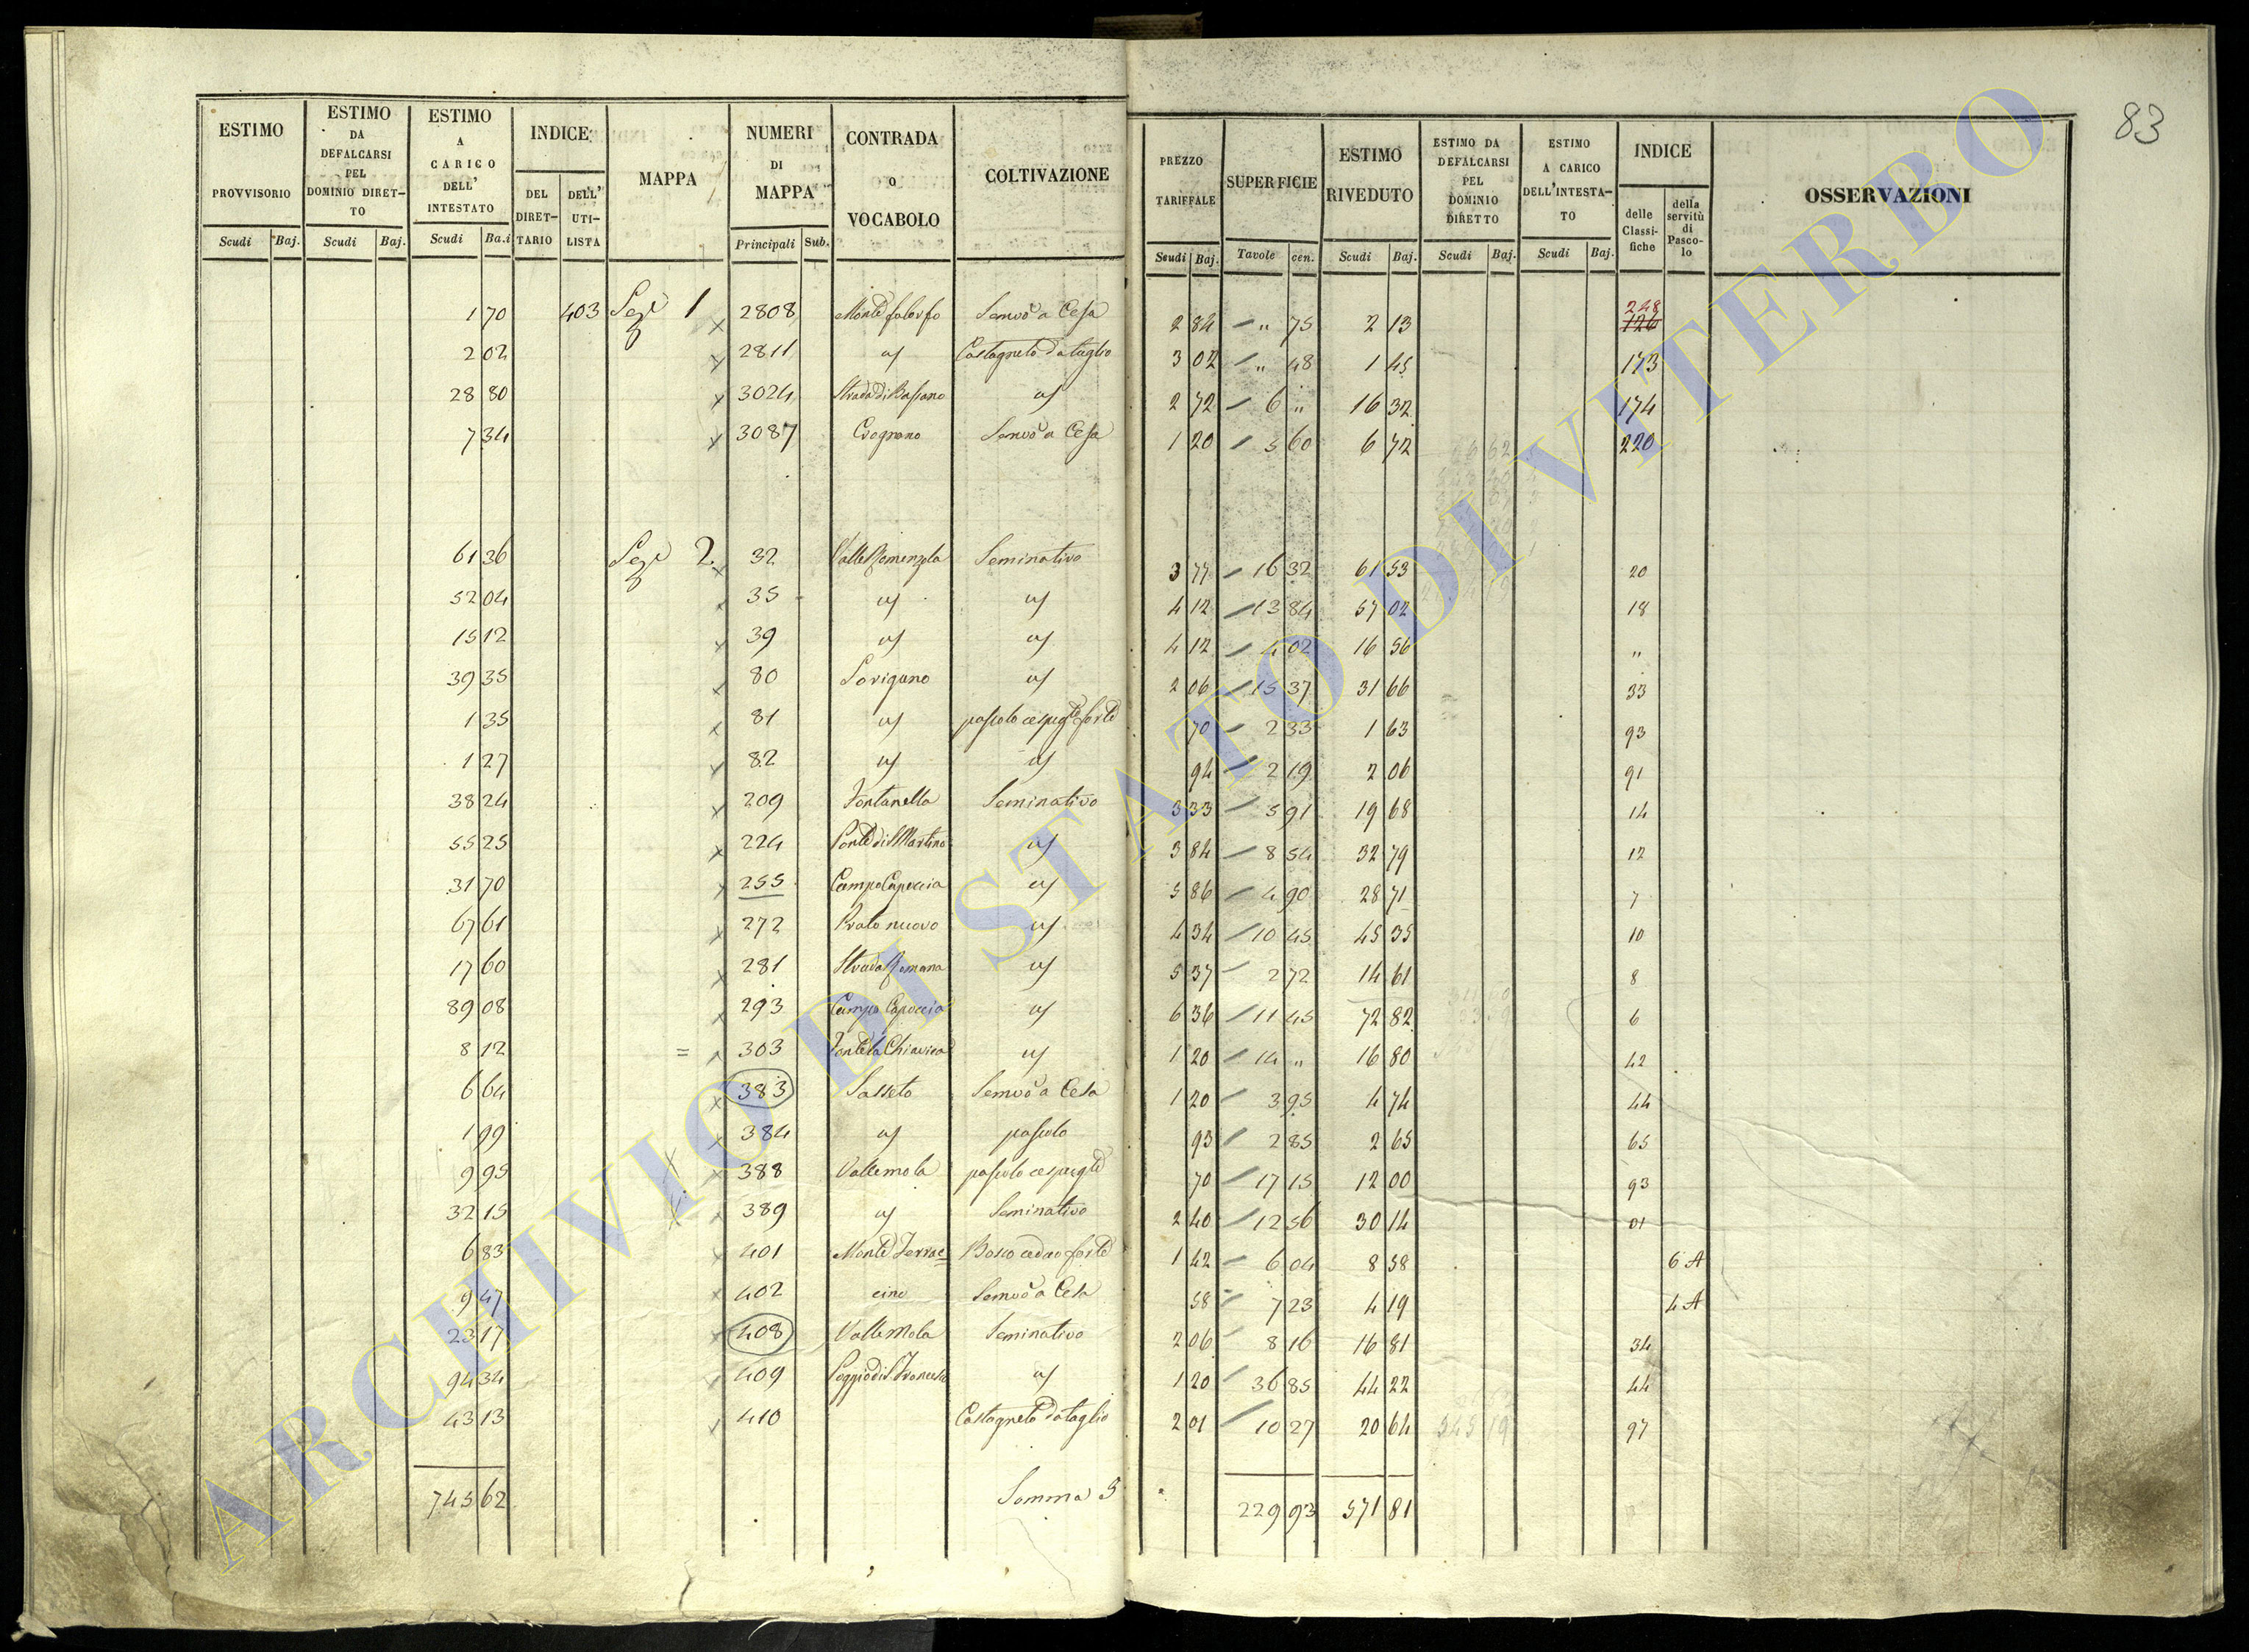 83
ESTIMO PROVVISORIO Scudi Baj.
ESTIMO DA DEFALCARSI PEL DOMINIO DIRET-TO Scudi Baj.
ESTIMO A CARICO DELL' INTESTATO Scudi Ba.i
INDICE DEL DIRET-TARIO DELL' UTI-LISTA
MAPPA
NUMERI DI MAPPA Principali Sub.
CONTRADA O VOCABOLO
COLTIVAZIONE
PREZZO TARIFFALE Scudi Baj.
SUPERFICIE Tavole cen.
ESTIMO RIVEDUTO Scudi Baj.
ESTIMO DA DEFALCARSI PEL DOMINIO DIRETTO Scudi Baj.
ESTIMO A CARICO DELL'INTESTA-TO Scudi Baj.
INDICE delle Classi-fiche della servitù di Pasco-lo
OSSERVAZIONI
1 70 403 Sez.e 1 x 2808 Semvo a Cesa 2 84 " 75 2 13 228 126
2 02 x 2811 es Castagneto da taglio 3 02 " 48 1 45 173
28 80 x 3024 Strada di Bassano es 2 72 6 " 16 32 174
7 34 x 3087 Semvo a Cesa 1 20 5 60 6 72 220
61 36 Sez.e 2 x 32 Valle Romenzola Seminativo 3 77 16 32 61 53 20
52 04 x 35 es es 4 12 13 84 57 02 18
15 12 x 39 es es 4 12 4 02 16 56 "
39 35 x 80 Sorigano es 2 06 15 37 31 66 33
1 35 x 81 es pascolo cespugto forte 70 2 33 1 63 93
1 27 x 82 es es 94 2 19 2 06 91
38 24 x 209 Fontanella Seminativo 3 33 5 91 19 68 14
55 25 x 224 Ponte di S Martino es 3 84 8 54 32 79 12
31 70 x 255 Campo Capoccia es 5 86 4 90 28 71 7
67 61 x 272 Prato nuovo es 4 34 10 45 45 35 10
17 60 x 281 Strada Romana es 5 37 2 72 14 61 8
89 08 x 293 Campo Capoccia es 6 36 11 45 72 82 6
8 12 = x 303 Fonte la Chiavica es 1 20 14 " 16 80 42
6 64 x 383 Sasseto Semvo a Cesa 1 20 3 95 4 74 44
1 99 x 384 es pascolo 93 2 85 2 65 65
9 95 x 388 Vallemola pascolo cespugto 70 17 15 12 00 93
32 15 x 389 es Seminativo 2 40 12 56 30 14 01
6 83 x 401 Monte Ferrac= Bosco ceduo forte 1 42 6 04 8 58 6 A
9 47 x 402 cino Semvo a Cesa 58 7 23 4 19 4 A
23 17 x 408 Valle Mola Seminativo 2 06 8 16 16 81 34
94 34 x 409 Poggio di S. Francesco es 1 20 36 85 44 22 44
43 13 x 410 Castagneto da taglio 2 01 10 27 20 64 97
745 62 Somma S 229 93 571 81
ARCHIVIO DI STATO DI VITERBO